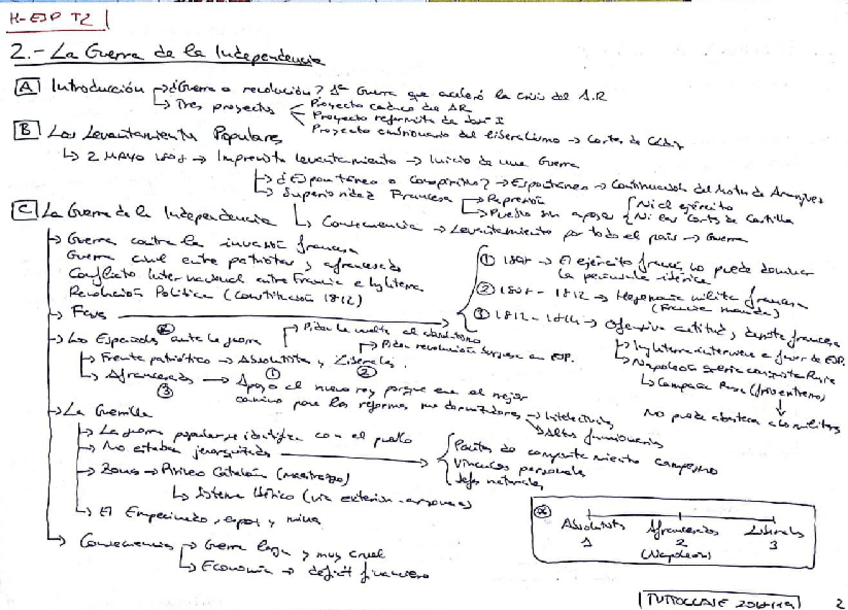 H-ESP T2
2.- La Guerra de la Independencia
A Introducción → ¿Guerra o revolución? Guerra que aceleró la crisis del A.R
→ Tres proyectos Proyecto caduco de AR
Proyecto reformista de José I
Proyecto del liberalismo → Cortes de Cádiz
B Los Levantamientos Populares
→ 2 MAYO 1808 → Imprevisto levantamiento → Inicio de una Guerra
→ ¿Espontáneo o Conspirativo? → Espontáneo → Continuación del Motín de Aranjuez
→ Superioridad Francesa → Represión
→ Pueblo sin apoyos Ni el ejército
Ni las Cortes de Castilla
→ Consecuencia → Levantamiento por todo el país → Guerra
C La Guerra de la Independencia
→ Guerra contra la invasión francesa
Guerra civil entre patriotas y afrancesados
Conflicto Internacional entre Francia e Inglaterra
Revolución Política (Constitución 1812)
→ Fases
① 1808 → El ejército francés no puede dominar
la península ibérica
② 1808 - 1812 → Hegemonía militar francesa
③ 1812 - 1814 → Ofensiva francesa
→ Inglaterra interviene a favor de ESP.
→ Napoleón Rusia
→ Campaña Rusa (frío extremo)
No puede abastecer a los militares
→ Los Españoles ante la guerra
→ Piden la vuelta al absolutismo
→ Piden revolución burguesa en ESP.
→ Frente patriótico → Absolutistas y Liberales.
① ②
→ Afrancesados → Apoyo al nuevo rey porque era el mejor
③
camino para las reformas → Intelectuales
→ Altos funcionarios
→ La Guerrilla
→ La guerra popular se identifica con el pueblo
→ No estaban jerarquizados
Pautas de comportamiento campesino
Vínculos personales
Jefes naturales
→ Zonas → Pirineo Catalán
→ Sistema Ibérico
→ El Empecinado, Espoz y Mina
→ Consecuencias → Guerra larga y muy cruel
→ Economía → déficit financiero
Absolutistas Afrancesados Liberales
1 2 3
(Napoleón)
2